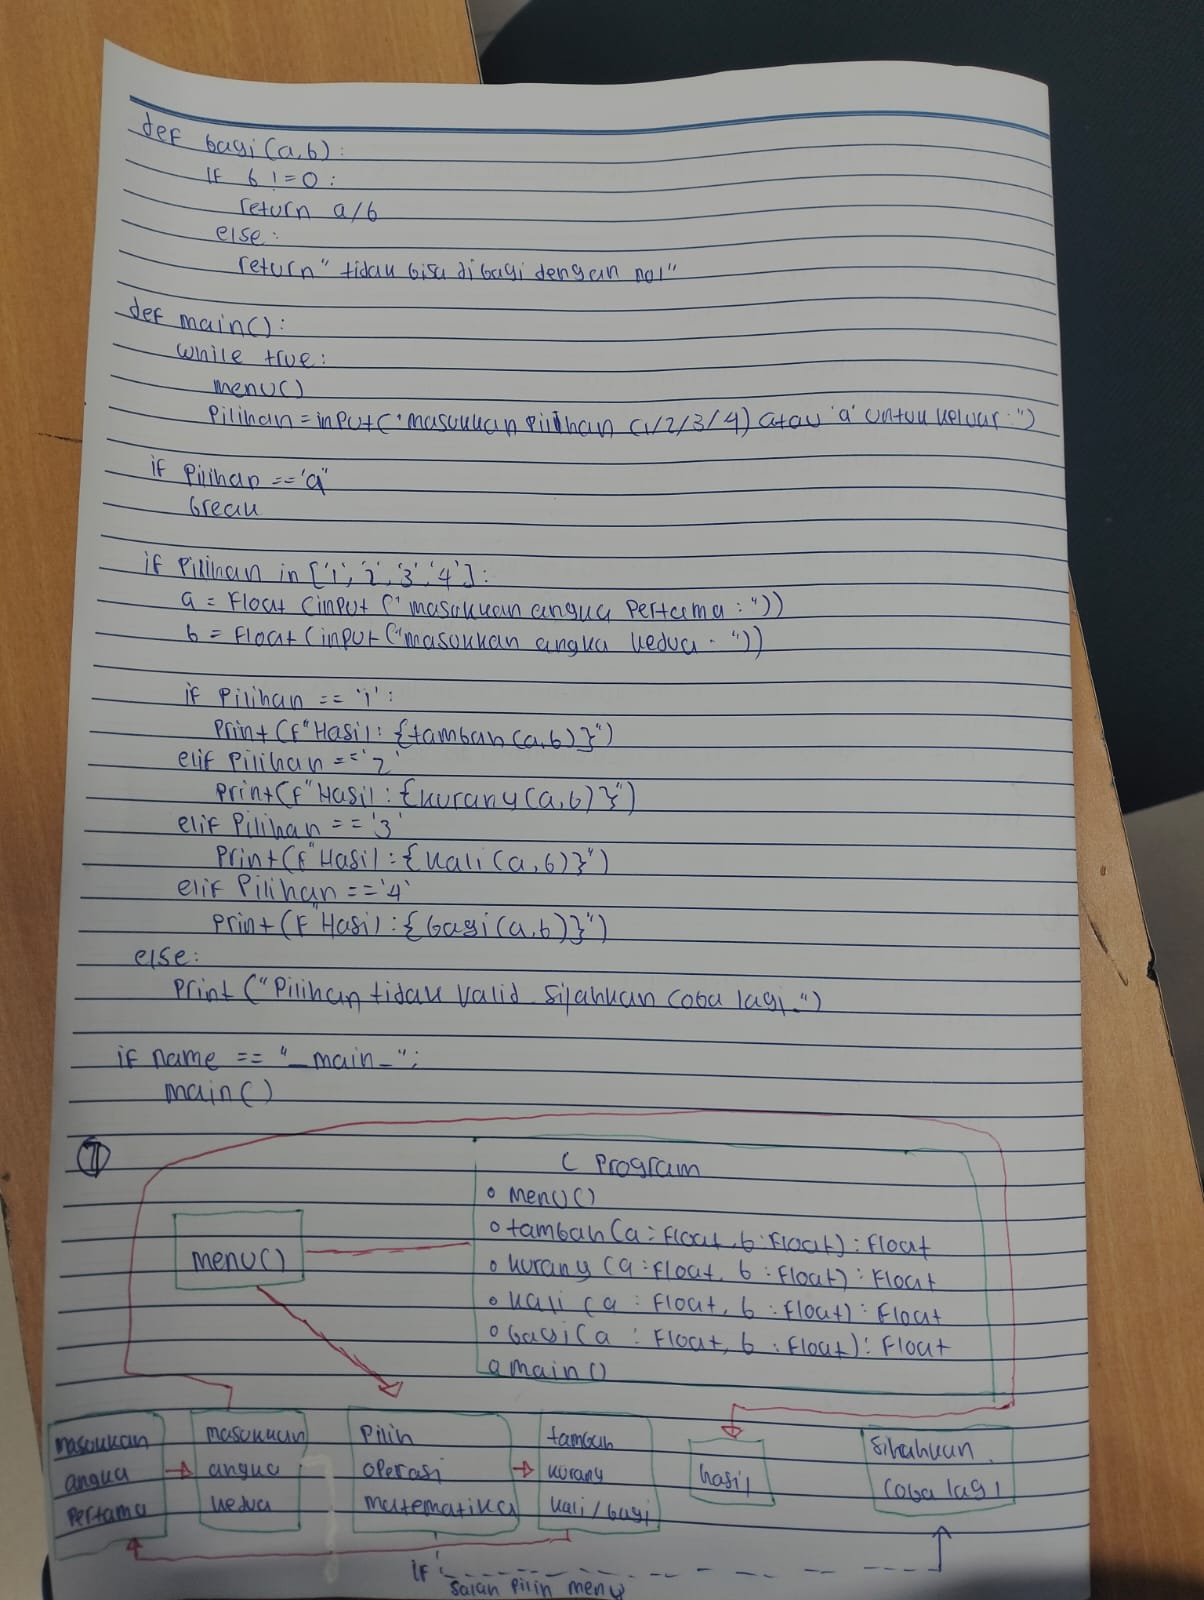 def bagi(a,b):
if b != 0:
return a/b
else:
return "tidak bisa dibagi dengan nol"
def main():
while true:
menu()
Pilihan = input("masukkan pilihan (1/2/3/4) atau 'a' untuk keluar:")
if Pilihan == 'a'
break
if Pilihan in ['1', '2', '3', '4']:
a = Float (input ("masukkan angka Pertama : "))
b = Float (input ("masukkan angka kedua : "))
if Pilihan == '1':
Print (f"Hasil : {tambah (a,b)}")
elif Pilihan == '2'
print (f"Hasil : {kurang (a,b)}")
elif Pilihan == '3'
Print (f"Hasil : {kali (a,b)}")
elif Pilihan == '4'
print (f"Hasil : {bagi (a,b)}")
else:
Print ("Pilihan tidak valid. Silahkan coba lagi.")
if name == "_main_":
main()
C Program
menu()
tambah (a : Float, b : Float) : Float
kurang (a : Float, b : Float) : Float
kali (a : Float, b : Float) : Float
bagi (a : Float, b : Float) : Float
main ()
menu()
masukkan angka Pertama
masukkan angka kedua
Pilih operasi matematika
tambah kurang kali / bagi
hasil
Silahkan coba lagi
if
Salah Pilih menu